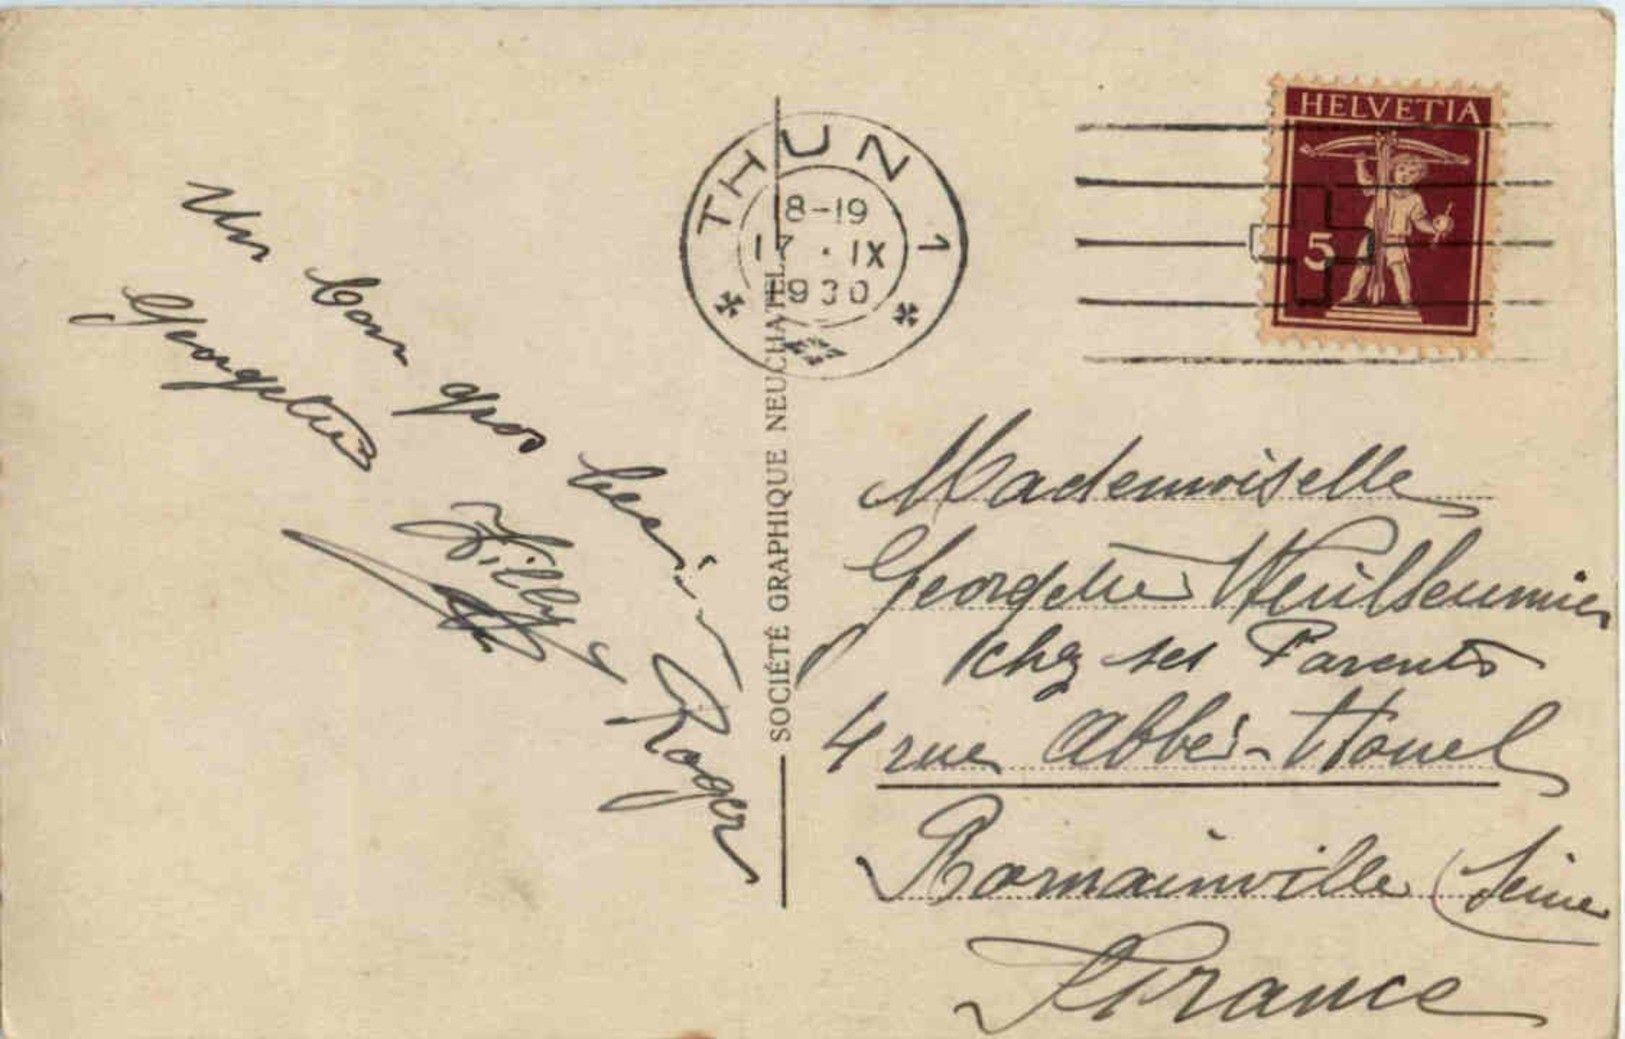 Un bon gros baiser
Georgette
Willy
Roger
SOCIÉTÉ GRAPHIQUE NEUCHATEL
THUN 1
18-19
17 . IX
1930
HELVETIA
5
Mademoiselle
Georgette Wuilleumier
chez ses Parents
4 rue Abbé-Houel
Romainville (Seine
France